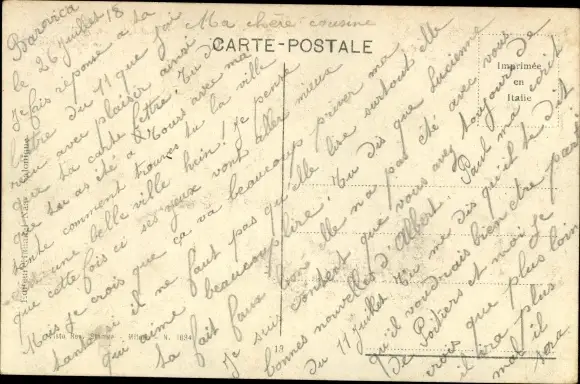 Ma chère cousine
Barovica
le 26 juillet 18
Je fais réponse à ta
lettre du 11 que j'ai
reçu avec plaisir ainsi
que ta carte lettre. Tu dis
que tu as été à Tours avec ma
tante comment trouves tu la ville
c'est une belle ville hein! Je pense
que cette fois ci ses yeux vont aller mieux
Mais je crois que ça va beaucoup priver ma
tante si il ne faut pas qu'elle lise surtout elle
qui aime beaucoup lire! Tu dis que Lucienne
t'a fait faux bon elle n'a pas été avec vous
Je suis content que vous avez toujours de
bonnes nouvelles d'Albert. Paul m'a écrit
du 11 juillet. Tu me dis qu'il t'a dit
qu'il voudrais bien être parti
de Poitiers et moi je
crois que plus loin
il ira plus
mal il
sera
CARTE-POSTALE
Imprimée
en
Italie
19